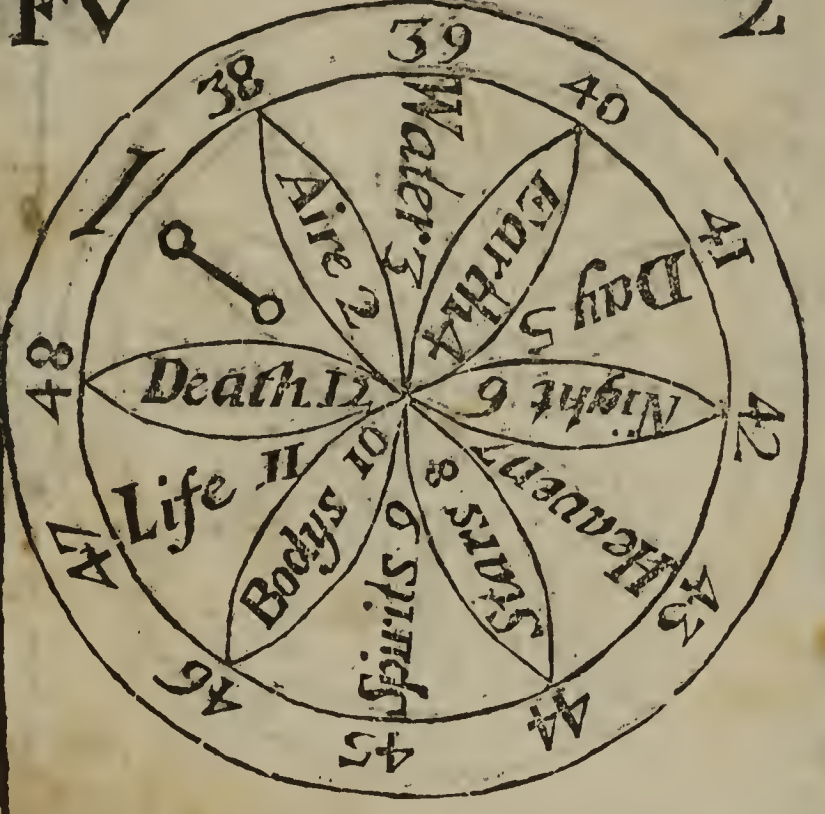 FV 2
38
39
40
41
42
43
44
45
46
47
48
I
Aire 2
Water 3
Earth 4
Day 5
Night 6
Heaven 7
Stars 8
Spirits 9
Bodys 10
Life 11
Death 12